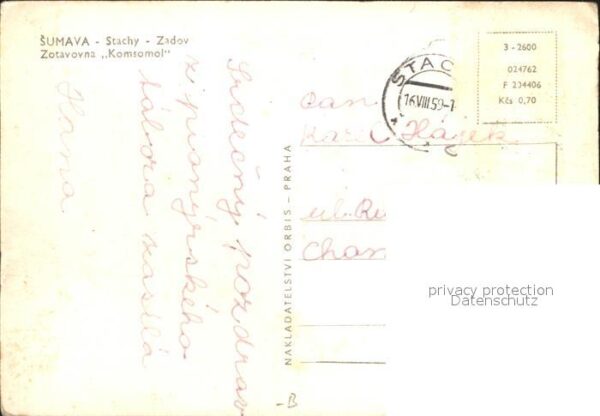 ŠUMAVA - Stachy - Zadov
Zotavovna „Komsomol"
Srdečný pozdrav
z pionýrského
tábora zasílá
Hana
NAKLADATELSTVÍ ORBIS — PRAHA
STAC
16.VIII.59-1
3 - 2600
024762
F 234406
Kčs 0,70
Karel Hájek
ul. Ru
Chom
privacy protection
Datenschutz
B